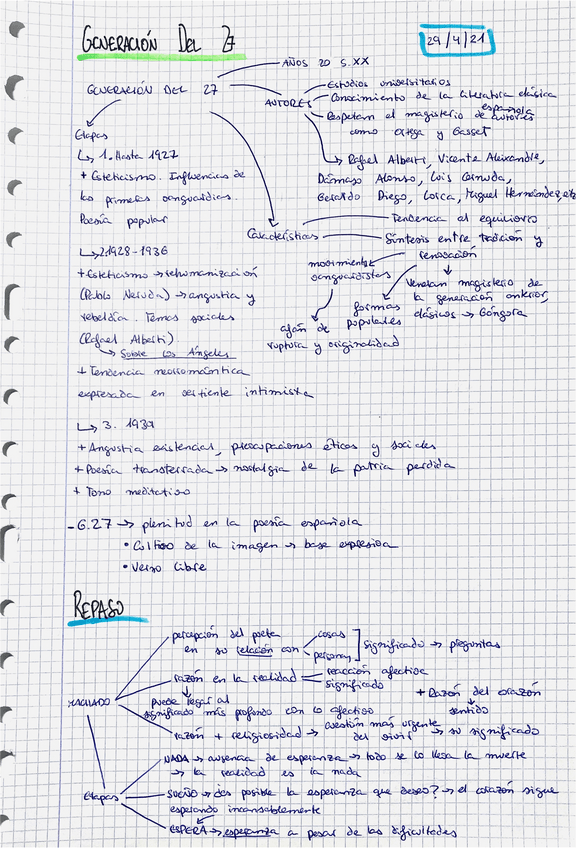 GENERACIÓN DEL 27
29/4/21
AÑOS 20 S. XX
GENERACIÓN DEL 27
AUTORES
Estudios universitarios
Conocimiento de la literatura clásica española
Respetan el magisterio de autores
como Ortega y Gasset
Rafael Alberti, Vicente Aleixandre,
Dámaso Alonso, Luis Cernuda,
Gerardo Diego, Lorca, Miguel Hernández, etc
Etapas
↳ 1. Hasta 1927
+ Esteticismo. Influencias de
las primeras vanguardias.
Poesía popular
↳ 2. 1928-1936
+ Esteticismo → rehumanización
(Pablo Neruda) → angustia y
rebeldía. Temas sociales
(Rafael Alberti)
→ Sobre los Ángeles
+ Tendencia neorromántica
expresada en vertiente intimista
↳ 3. 1939
+ Angustia existencial, preocupaciones éticas y sociales
+ Poesía transterrada → nostalgia de la patria perdida
+ Tono meditativo
Características
Tendencia al equilibrio
Síntesis entre tradición y
renovación
movimientos
vanguardistas
afán de
ruptura y originalidad
formas
populares
Veneran magisterio de
la generación anterior,
clásicos → Góngora
- G.27 → plenitud en la poesía española
• Cultivo de la imagen → base expresiva
• Verso libre
REPASO
MACHADO
percepción del poeta
en su relación con
cosas
personas
significado → preguntas
razón en la realidad
reacción afectiva
significado
puede llegar al
significado más profundo con lo afectivo
+ Razón del corazón
sentido
razón + religiosidad → cuestión más urgente
del vivir → su significado
Etapas
NADA → ausencia de esperanza → todo se lo lleva la muerte
→ la realidad es la nada
SUEÑO → ¿es posible la esperanza que deseo? → el corazón sigue
esperando incansablemente
ESPERA → esperanza a pesar de las dificultades